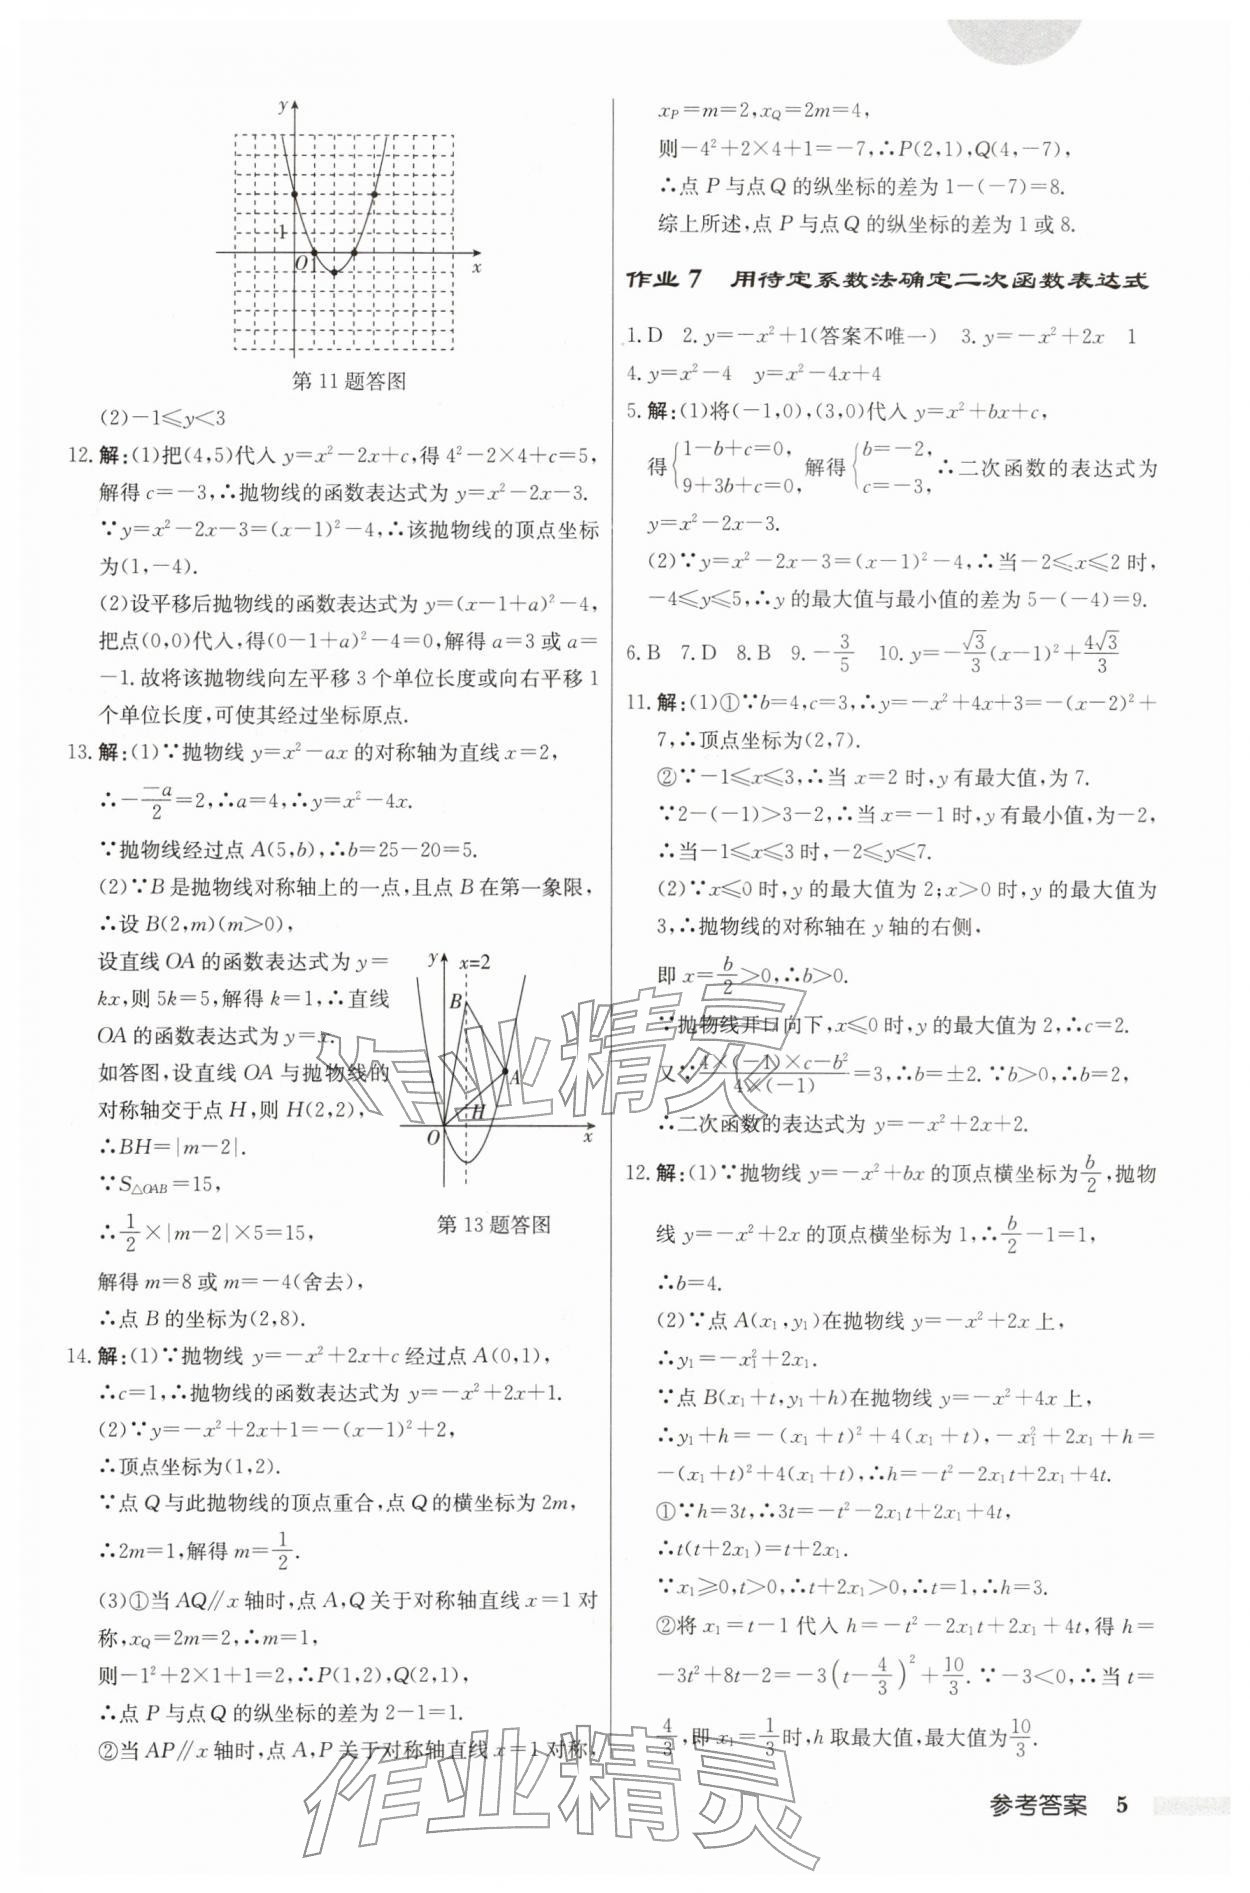 y
1
O 1
x
第 11 题答图
(2)－1≤y<3
12. 解:(1)把(4,5)代入 y=x²－2x+c,得 4²－2×4+c=5,
解得 c=－3,∴抛物线的函数表达式为 y=x²－2x－3.
∵y=x²－2x－3=(x－1)²－4,∴该抛物线的顶点坐标
为(1,－4).
(2)设平移后抛物线的函数表达式为 y=(x－1+a)²－4,
把点(0,0)代入,得(0－1+a)²－4=0,解得 a=3 或 a=
－1.故将该抛物线向左平移 3 个单位长度或向右平移 1
个单位长度,可使其经过坐标原点.
13. 解:(1)∵抛物线 y=x²－ax 的对称轴为直线 x=2,
∴－(－a)/2=2,∴a=4,∴y=x²－4x.
∵抛物线经过点 A(5,b),∴b=25－20=5.
(2)∵B 是抛物线对称轴上的一点,且点 B 在第一象限,
∴设 B(2,m)(m>0),
设直线 OA 的函数表达式为 y=
kx,则 5k=5,解得 k=1,∴直线
OA 的函数表达式为 y=x.
如答图,设直线 OA 与抛物线的
对称轴交于点 H,则 H(2,2),
∴BH=|m－2|.
∵S△OAB=15,
∴1/2×|m－2|×5=15,
解得 m=8 或 m=－4(舍去),
∴点 B 的坐标为(2,8).
y
x=2
B
A
H
O
x
第 13 题答图
14. 解:(1)∵抛物线 y=－x²+2x+c 经过点 A(0,1),
∴c=1,∴抛物线的函数表达式为 y=－x²+2x+1.
(2)∵y=－x²+2x+1=－(x－1)²+2,
∴顶点坐标为(1,2).
∵点 Q 与此抛物线的顶点重合,点 Q 的横坐标为 2m,
∴2m=1,解得 m=1/2.
(3)①当 AQ∥x 轴时,点 A,Q 关于对称轴直线 x=1 对
称,xQ=2m=2,∴m=1,
则－1²+2×1+1=2,∴P(1,2),Q(2,1),
∴点 P 与点 Q 的纵坐标的差为 2－1=1.
②当 AP∥x 轴时,点 A,P 关于对称轴直线 x=1 对称,
xP=m=2,xQ=2m=4,
则－4²+2×4+1=－7,∴P(2,1),Q(4,－7),
∴点 P 与点 Q 的纵坐标的差为 1－(－7)=8.
综上所述,点 P 与点 Q 的纵坐标的差为 1 或 8.
作业 7 用待定系数法确定二次函数表达式
1. D 2. y=－x²+1(答案不唯一) 3. y=－x²+2x 1
4. y=x²－4 y=x²－4x+4
5. 解:(1)将(－1,0),(3,0)代入 y=x²+bx+c,
得{1－b+c=0, 9+3b+c=0, 解得{b=－2, c=－3, ∴二次函数的表达式为
y=x²－2x－3.
(2)∵y=x²－2x－3=(x－1)²－4,∴当－2≤x≤2 时,
－4≤y≤5,∴y 的最大值与最小值的差为 5－(－4)=9.
6. B 7. D 8. B 9. －3/5 10. y=－√3/3(x－1)²+4√3/3
11. 解:(1)①∵b=4,c=3,∴y=－x²+4x+3=－(x－2)²+
7,∴顶点坐标为(2,7).
②∵－1≤x≤3,∴当 x=2 时,y 有最大值,为 7.
∵2－(－1)>3－2,∴当 x=－1 时,y 有最小值,为－2,
∴当－1≤x≤3 时,－2≤y≤7.
(2)∵x≤0 时,y 的最大值为 2;x>0 时,y 的最大值为
3,∴抛物线的对称轴在 y 轴的右侧,
即 x=b/2>0,∴b>0.
∵抛物线开口向下,x≤0 时,y 的最大值为 2,∴c=2.
又∵(4×(－1)×c－b²)/(4×(－1))=3,∴b=±2.∵b>0,∴b=2,
∴二次函数的表达式为 y=－x²+2x+2.
12. 解:(1)∵抛物线 y=－x²+bx 的顶点横坐标为b/2,抛物
线 y=－x²+2x 的顶点横坐标为 1,∴b/2－1=1,
∴b=4.
(2)∵点 A(x₁,y₁)在抛物线 y=－x²+2x 上,
∴y₁=－x₁²+2x₁.
∵点 B(x₁+t,y₁+h)在抛物线 y=－x²+4x 上,
∴y₁+h=－(x₁+t)²+4(x₁+t),－x₁²+2x₁+h=
－(x₁+t)²+4(x₁+t),∴h=－t²－2x₁t+2x₁+4t.
①∵h=3t,∴3t=－t²－2x₁t+2x₁+4t,
∴t(t+2x₁)=t+2x₁.
∵x₁≥0,t>0,∴t+2x₁>0,∴t=1,∴h=3.
②将 x₁=t－1 代入 h=－t²－2x₁t+2x₁+4t,得 h=
－3t²+8t－2=－3(t－4/3)²+10/3.∵－3<0,∴当 t=
4/3,即 x₁=1/3时,h 取最大值,最大值为10/3.
作业精灵
作业精灵
参考答案 5